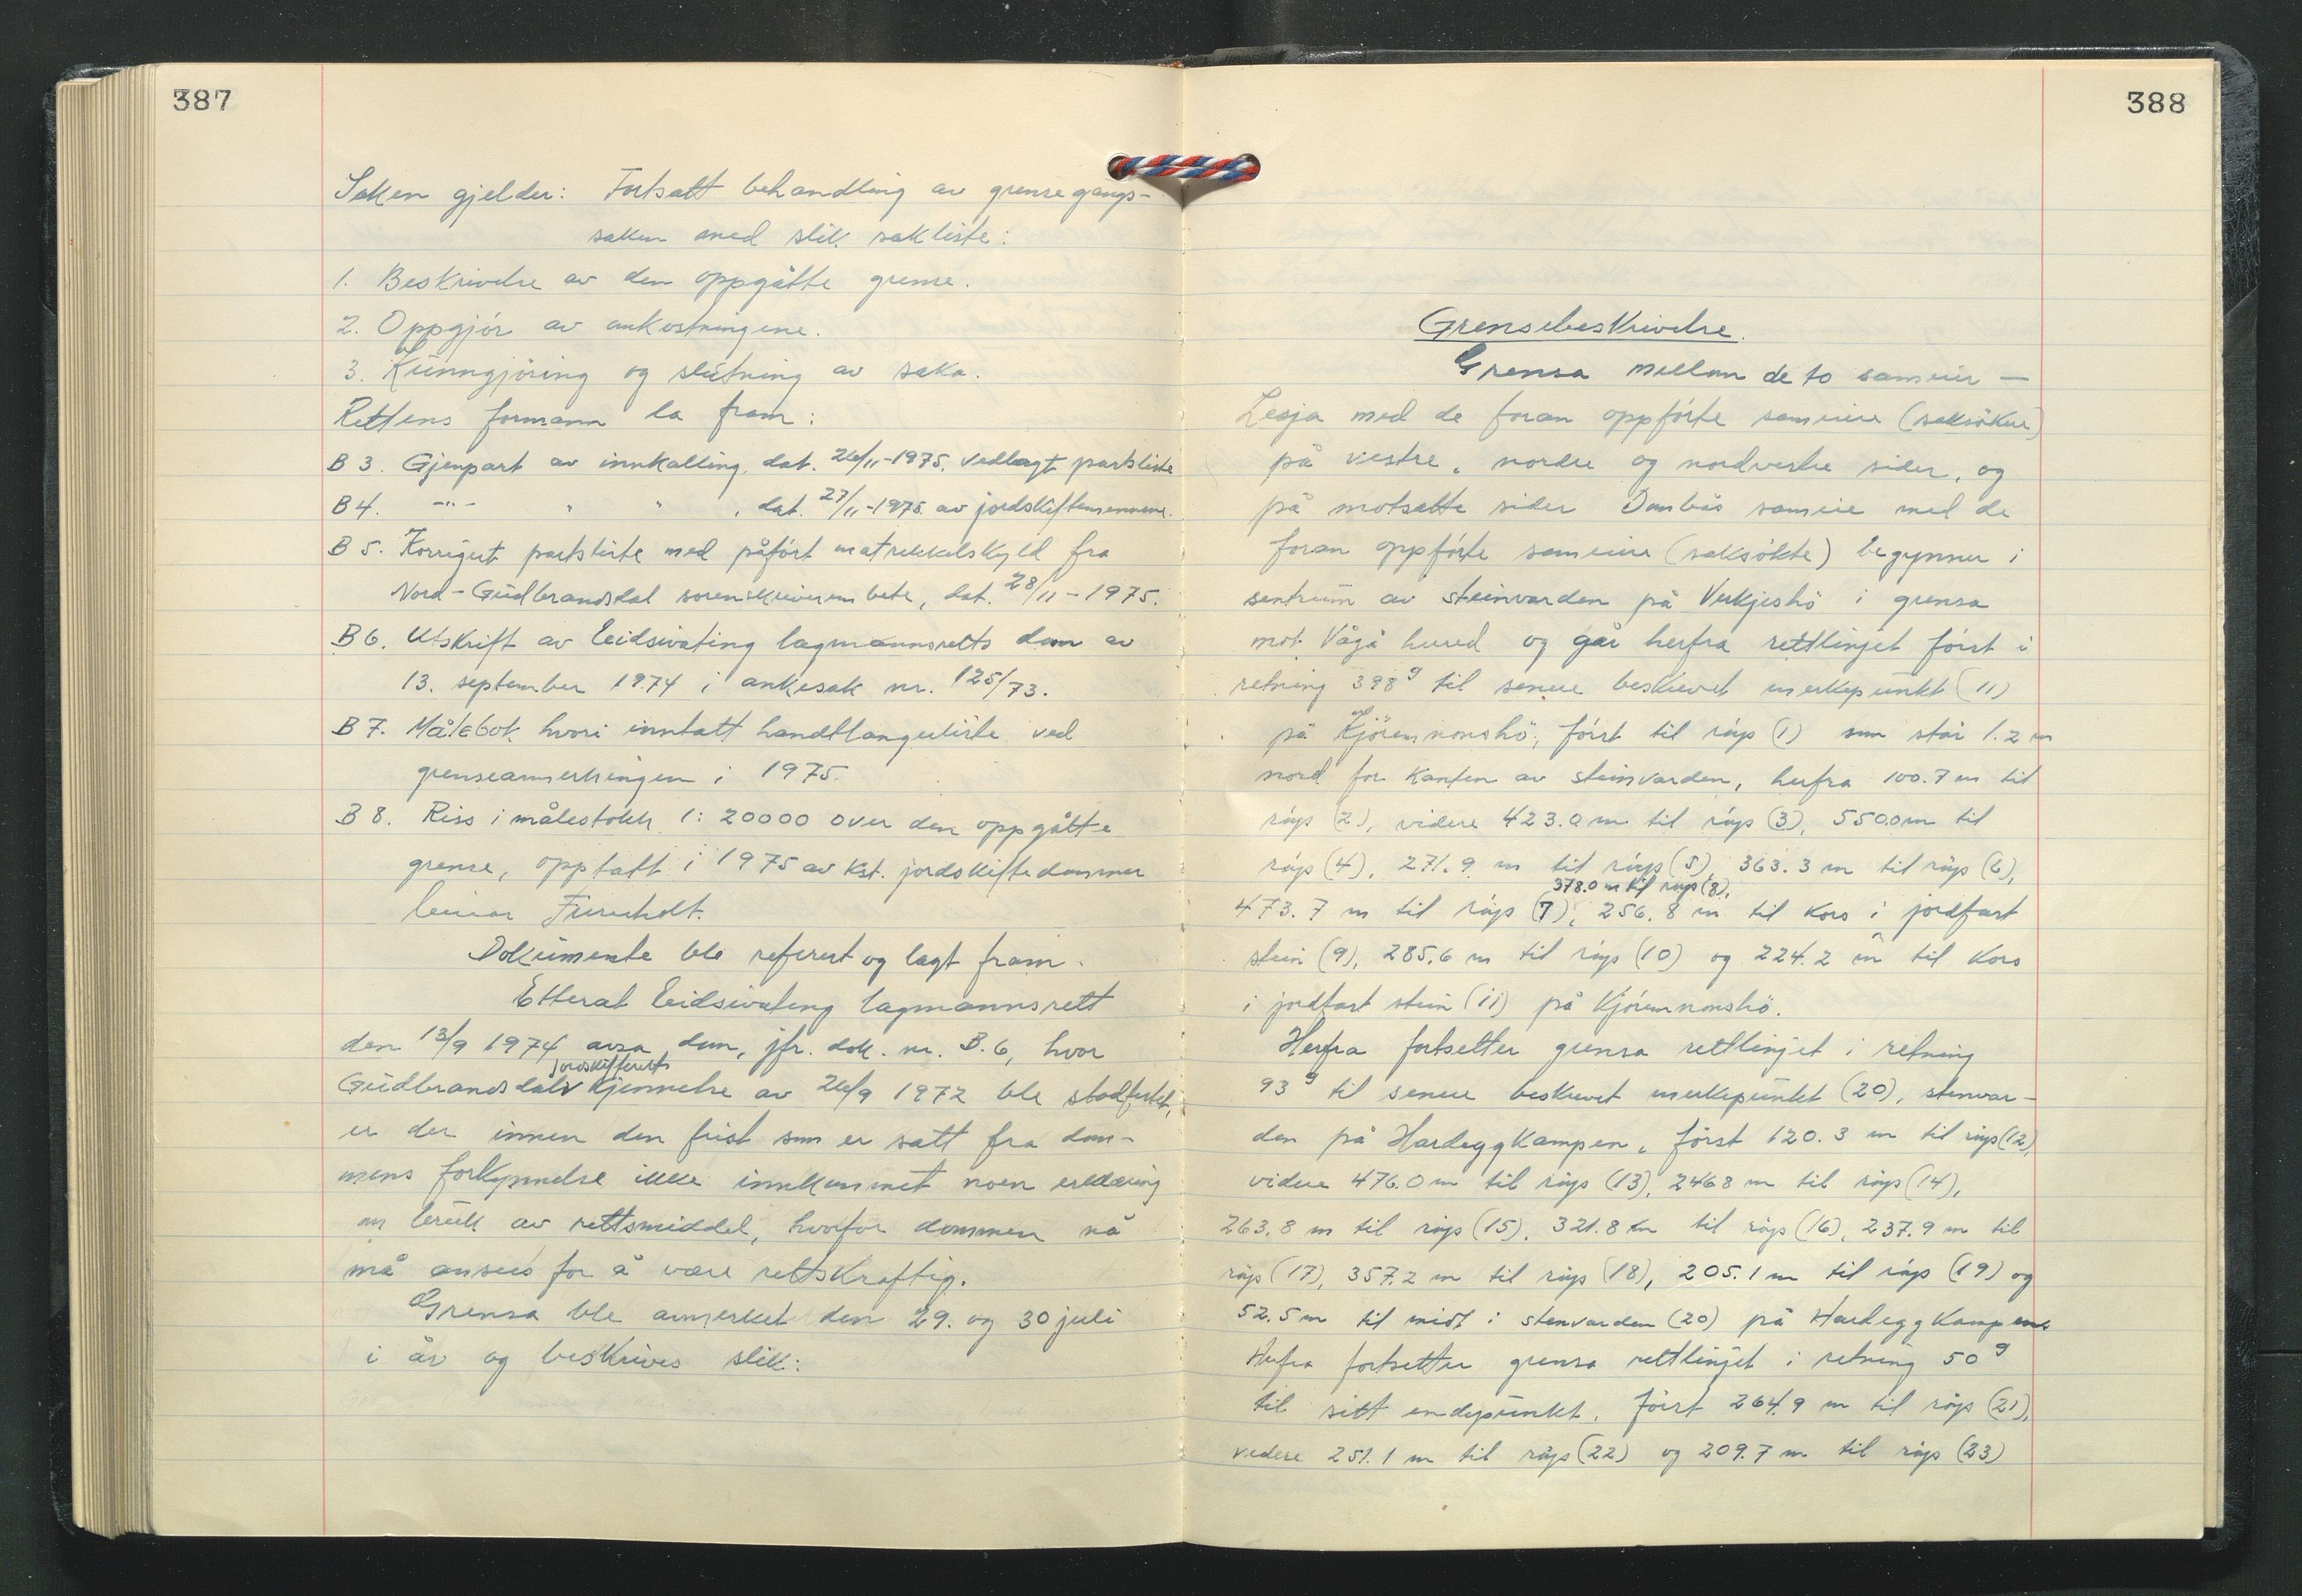 387
Saken gjelder: Fortsatt behandling av grensegangs-
saken med slik sakliste:
1. Beskrivelse av den oppgåtte grense.
2. Oppgjör av omkostningene.
3. Kunngjöring og slutning av saka.
Rettens formann la fram:
B 3. Gjenpart av innkalling, dat. 26/11-1975, vedlagt partsliste
B 4. -"- " " , dat. 27/11-1975 av jordskiftemennene.
B 5. Korrigert partsliste med påfört matrikkelskyld fra
Nord-Gudbrandsdal sorenskriverembete, dat. 28/11-1975.
B 6. Utskrift av Eidsivating lagmannsretts dom av
13. september 1974 i ankesak nr. 125/73.
B 7. Målebok hvori inntatt handtlangerliste ved
grenseanmerkingen i 1975.
B 8. Riss i målestokk 1:20000 over den oppgåtte
grense, opptatt i 1975 av kst. jordskiftedommer
Einar Furuholt.
Dokumente ble referert og lagt fram.
Etterat Eidsivating lagmannsrett
den 13/9 1974 avsa dom, jfr. dok. nr. B.6, hvor
jordskifteretts
Gudbrandsdal kjennelse av 26/9 1972 ble stadfestet,
er der innen den frist som er satt fra dom-
mens forkynnelse ikke innkommet noen erklæring
om bruk av rettsmiddel, hvorfor dommen nå
må ansees for å være rettskraftig.
Grensa ble avmerket den 29. og 30 juli
i år og beskrives slik:
388
Grensebeskrivelse.
Grensa mellom de to sameier -
Lesja med de foran oppförte sameiere (saksökere)
på vestre, nordre og nordvestre sider, og
på motsatte sider Dombås sameie med de
foran oppförte sameiere (saksökte) begynner i
sentrum av steinvarden på Verkjeshö i grensa
mot Vågå herred og går herfra rettlinjet först i
retning 398g til senere beskrevet merkepunkt (11)
på Kjöremnonshö, först til röys (1) som står 1.2 m
nord for kanten av steinvarden, herfra 100.7 m til
röys (2), videre 423.0 m til röys (3), 550.0 m til
röys (4), 271.9 m til röys (5), 363.3 m til röys (6),
378.0 m til röys (8),
473.7 m til röys (7), 256.8 m til kors i jordfast
stein (9), 285.6 m til röys (10) og 224.2 m til kors
i jordfast stein (11) på Kjöremnonshö.
Herfra fortsetter grensa rettlinjet i retning
93g til senere beskrevet merkepunkt (20), stenvar-
den på Hardeggkampen, först 120.3 m til röys (12),
videre 476.0 m til röys (13), 246.8 m til röys (14),
263.8 m til röys (15), 321.8 m til röys (16), 237.9 m til
röys (17), 357.2 m til röys (18), 205.1 m til röys (19) og
52.5 m til midt i stenvarden (20) på Hardeggkampen.
Herfra fortsetter grensa rettlinjet i retning 50g
til sitt endepunkt, först 264.9 m til röys (21),
videre 251.1 m til röys (22) og 209.7 m til röys (23)